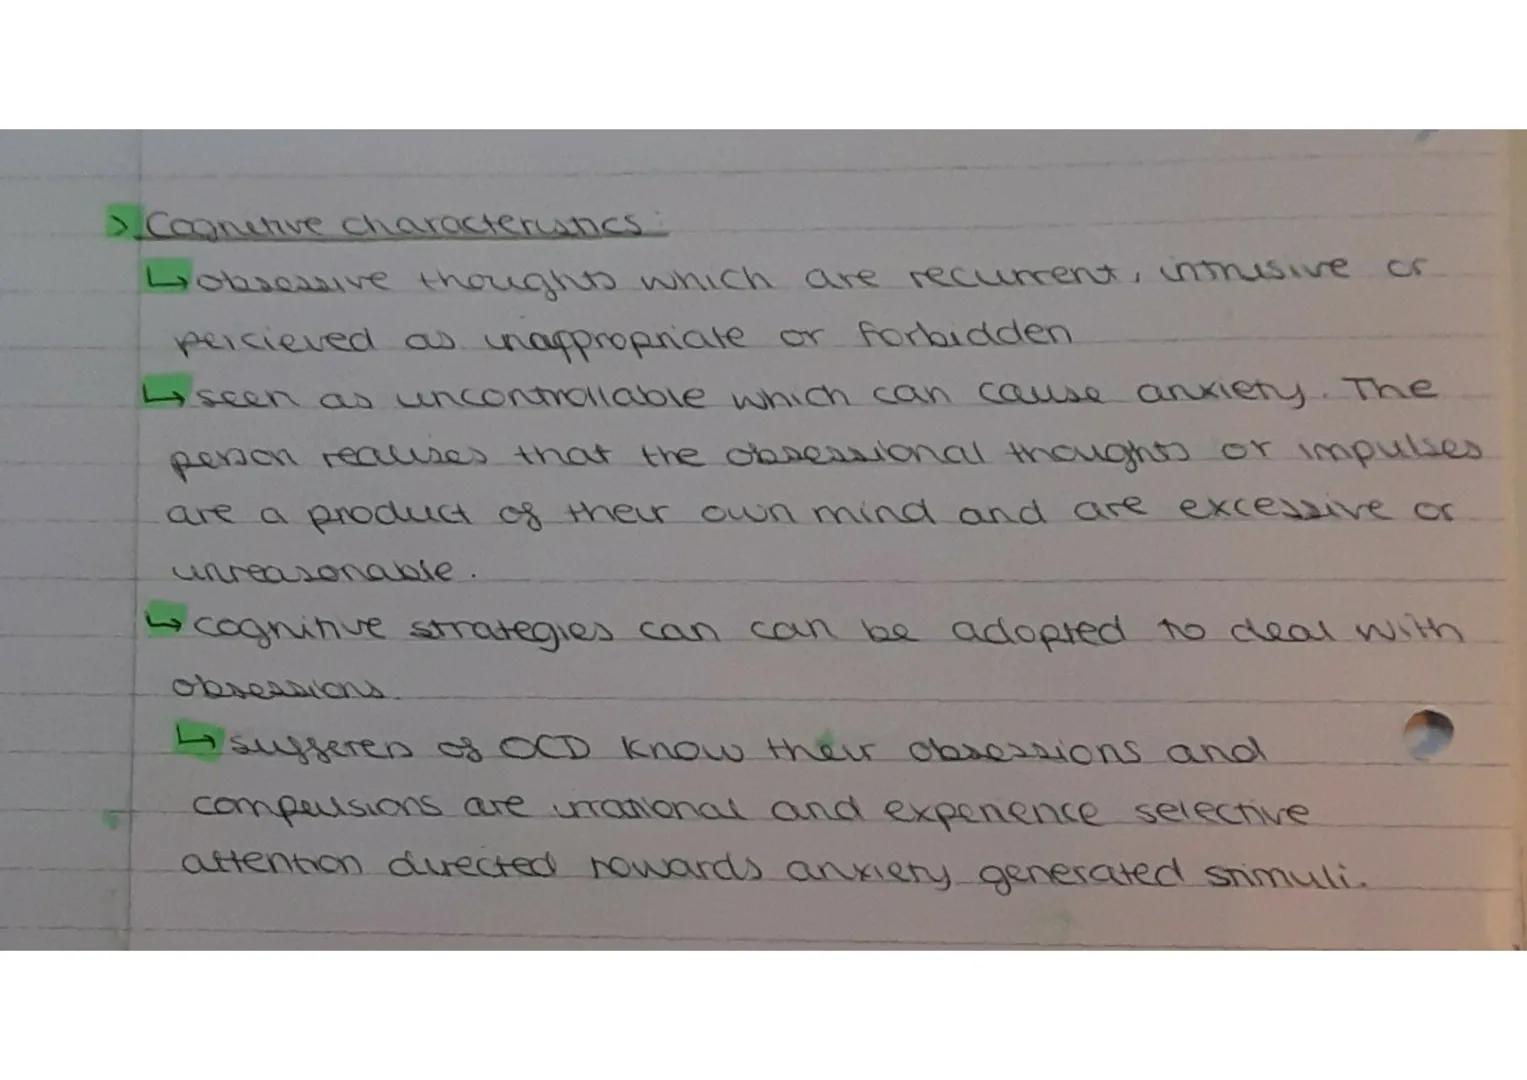 > Cognitive characteristics:
↳ obsessive thoughts which are recurrent, intrusive or
percieved as inappropriate or forbidden
↳ seen as uncontrollable which can cause anxiety. The
person realises that the obsessional thoughts or impulses
are a product of their own mind and are excessive or
unreasonable.
↳ cognitive strategies can can be adopted to deal with
obsessions.
↳ sufferers of OCD know their obsessions and
compulsions are irrational and experience selective
attention directed towards anxiety generated stimuli.